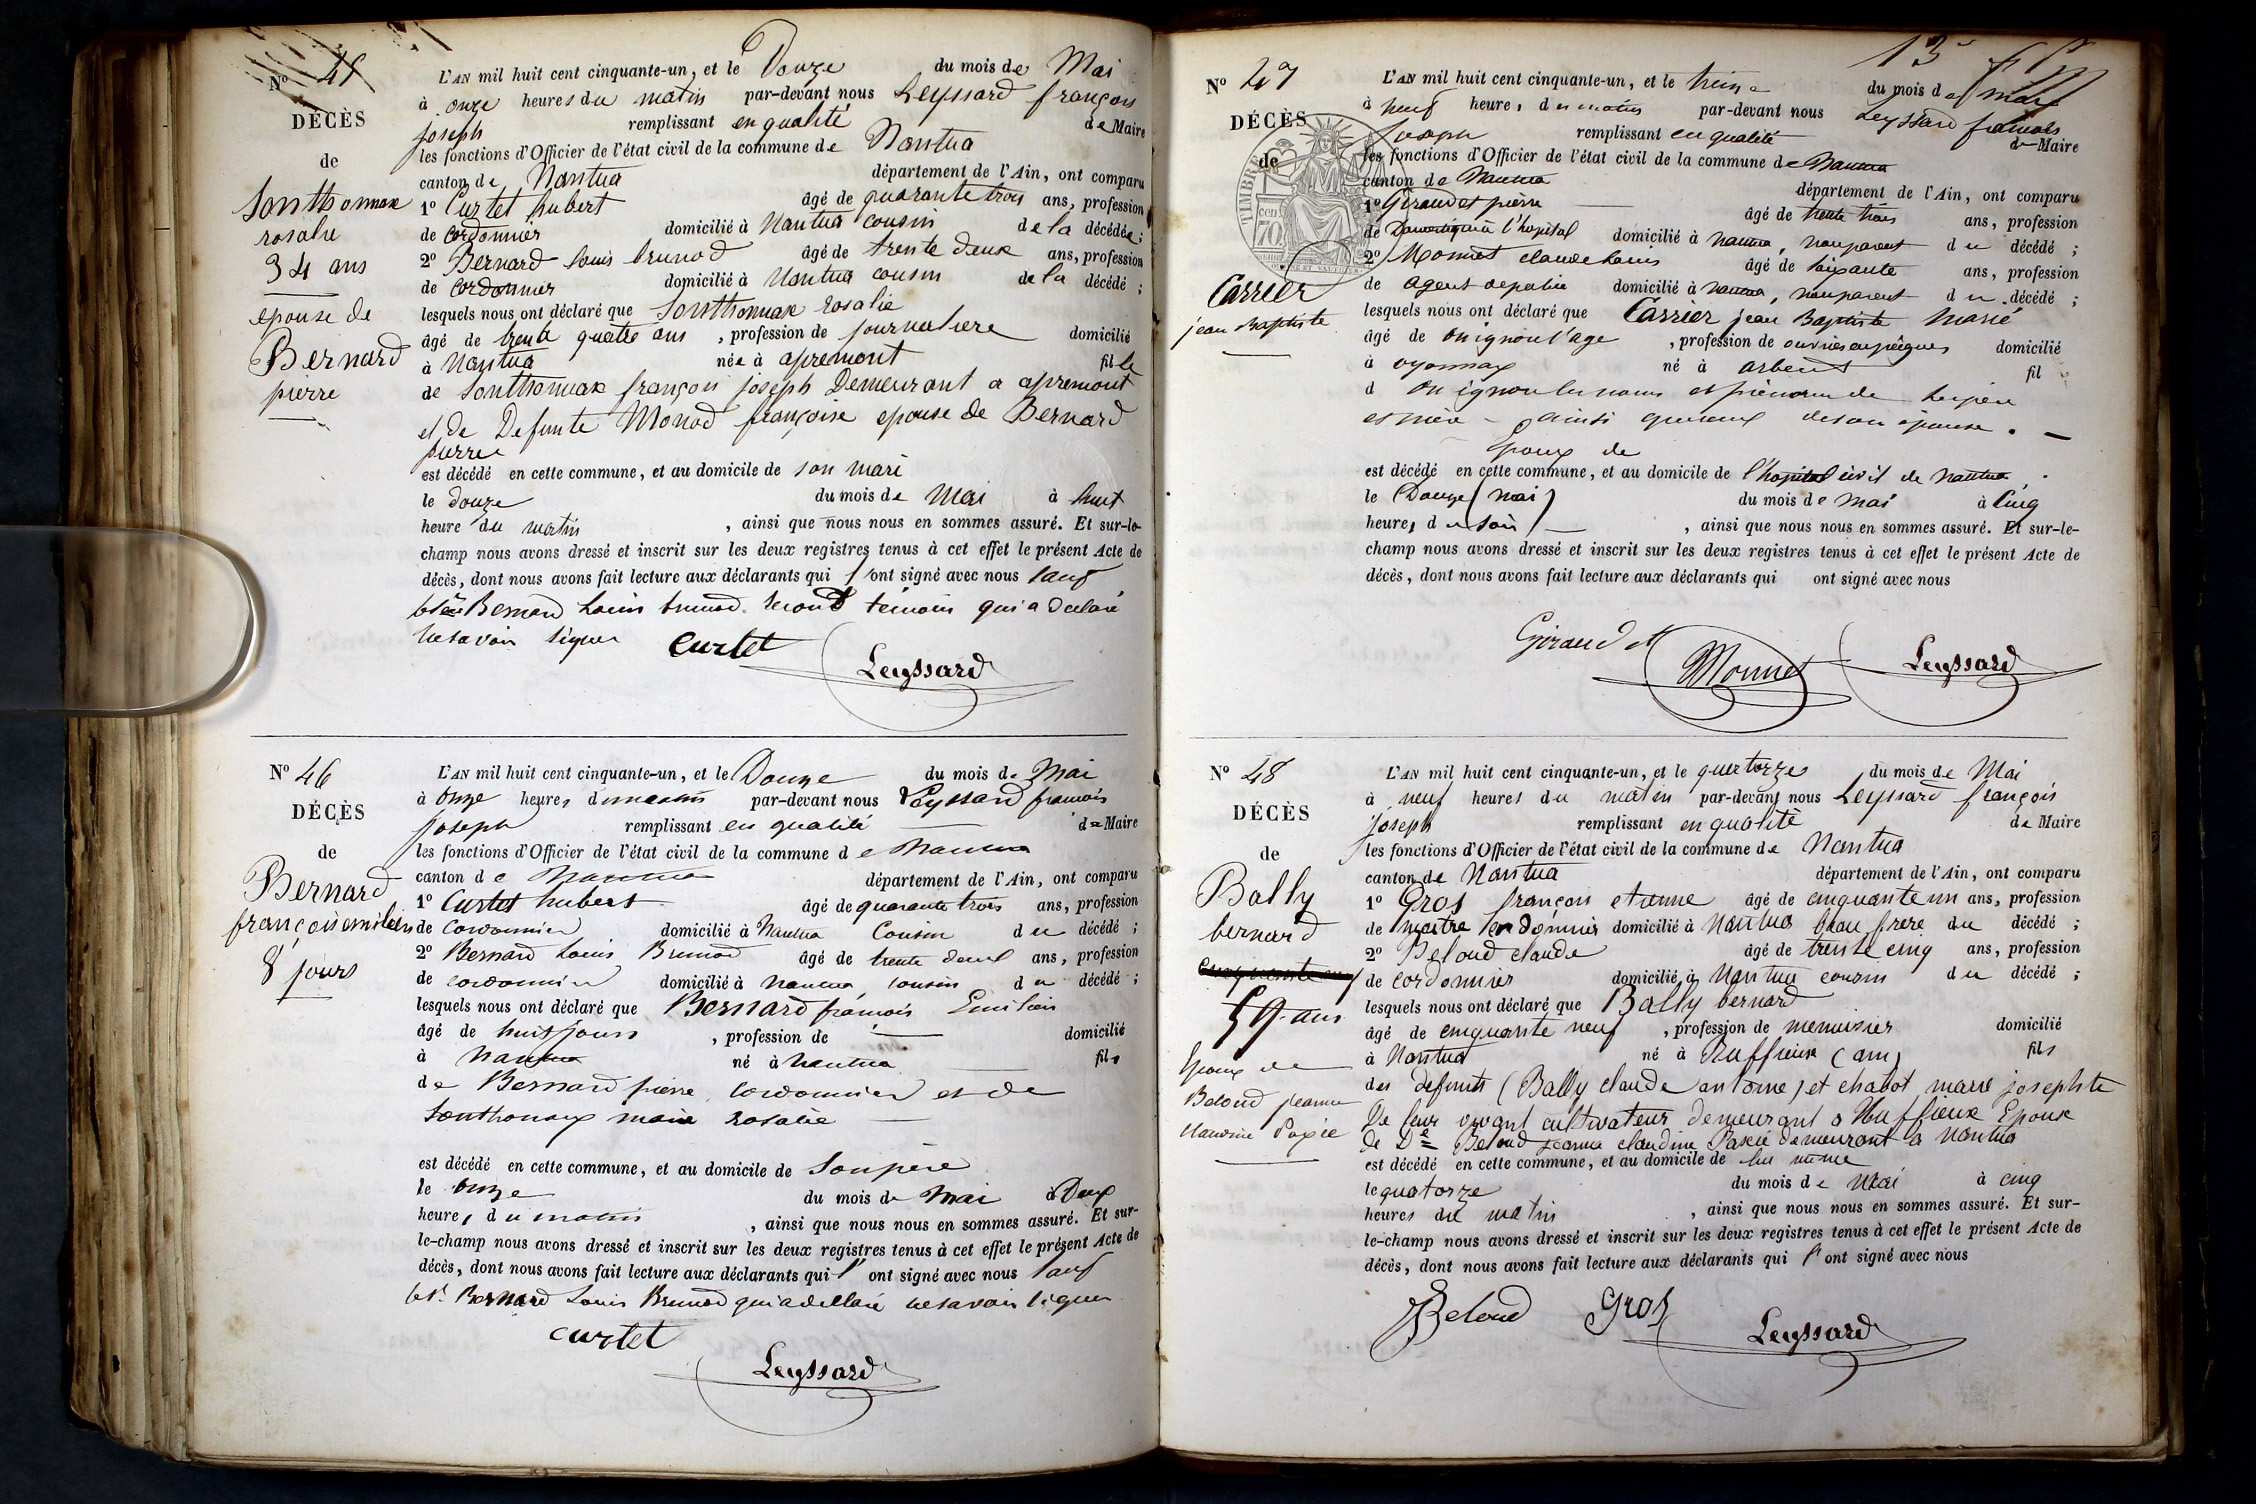 Nº 45
DÉCÈS
de
Sonthonnax
rosalie
34 ans
epouse de
Bernard
pierre
L'AN mil huit cent cinquante-un, et le Douze du mois de Mai
à onze heures du matin par-devant nous Leyssard françois
joseph remplissant en qualité de Maire
les fonctions d'Officier de l'état civil de la commune de Nantua
canton de Nantua département de l'Ain, ont comparu
1º Curtet hubert âgé de quarante trois ans, profession
de cordonnier domicilié à Nantua cousin de la décédée;
2º Bernard louis brunod âgé de trente deux ans, profession
de cordonnier domicilié à Nantua cousin de la décédé;
lesquels nous ont déclaré que Sonthonnax rosalie
âgé de trente quatre ans, profession de journaliere domicilié
à Nantua née à apremont fille
de Sonthonnax françois joseph Demeurant a apremont
et de Defunte Monod françoise epouse de Bernard
pierre
est décédé en cette commune, et au domicile de son mari
le douze du mois de Mai à huit
heure du matin, ainsi que nous nous en sommes assuré. Et sur-le-
champ nous avons dressé et inscrit sur les deux registres tenus à cet effet le présent Acte de
décès, dont nous avons fait lecture aux déclarants qui l'ont signé avec nous sauf
le Bernard Louis brunod second témoin qui a declaré
ne savoir signer Curtet
Leyssard
Nº 46
DÉCÈS
de
Bernard
françois emilien
8 jours
L'AN mil huit cent cinquante-un, et le Douze du mois de Mai
à Onze heures du matin par-devant nous Leyssard francois
joseph remplissant en qualité de Maire
les fonctions d'Officier de l'état civil de la commune de Nantua
canton de Nantua département de l'Ain, ont comparu
1º Curtet hubert âgé de quarante trois ans, profession
de Cordonnier domicilié à Nantua Cousin du décédé;
2º Bernard Louis Brunod âgé de trente deux ans, profession
de cordonnier domicilié à Nantua, cousin du décédé;
lesquels nous ont déclaré que Bernard francois Emilien
âgé de huit jours, profession de domicilié
à Nantua né à Nantua fils
de Bernard pierre, cordonnier et de
Sonthonax marie rosalie
est décédé en cette commune, et au domicile de Son père
le Onze du mois de Mai à Deux
heures du matin, ainsi que nous nous en sommes assuré. Et sur-
le-champ nous avons dressé et inscrit sur les deux registres tenus à cet effet le présent Acte de
décès, dont nous avons fait lecture aux déclarants qui l'ont signé avec nous sauf
le Sr. Bernard Louis Brunod qui a declaré ne savoir signer
Curtet
Leyssard
13
Nº 47
DÉCÈS
de
TIMBRE
70 cen
Carrier
jean Baptiste
L'AN mil huit cent cinquante-un, et le treize du mois de mai
à neuf heures du matin par-devant nous Leyssard francois
Joseph remplissant en qualité de Maire
les fonctions d'Officier de l'état civil de la commune de Nantua
canton de Nantua département de l'Ain, ont comparu
1º Giraudet pierre âgé de trente trois ans, profession
de Domestique à l'hopital domicilié à nantua, non parent du décédé;
2º Monnet claude Louis âgé de soixante ans, profession
de agent de police domicilié à nantua, non parent du décédé;
lesquels nous ont déclaré que Carrier jean Baptiste Marié
âgé de on ignore l'age, profession de ouvrier en peignes domicilié
à oyonnax né à arbent fil
d on ignore les noms et prénoms de ses père
et mère - ainsi que ceux de son épouse. -
Epoux de
est décédé en cette commune, et au domicile de l'hopital civil de nantua.
le Douze (mai) du mois de mai à Cinq
heures du soir, ainsi que nous nous en sommes assuré. Et sur-le-
champ nous avons dressé et inscrit sur les deux registres tenus à cet effet le présent Acte de
décès, dont nous avons fait lecture aux déclarants qui ont signé avec nous
Giraudet Monnet Leyssard
Nº 48
DÉCÈS
de
Bally
bernard
59 ans
Epoux de
Beloud jeanne
claudine Paxie
L'AN mil huit cent cinquante-un, et le quatorze du mois de Mai
à neuf heures du matin par-devant nous Leyssard françois
joseph remplissant en qualité de Maire
les fonctions d'Officier de l'état civil de la commune de Nantua
canton de Nantua département de l'Ain, ont comparu
1º Gros françois etienne âgé de cinquante un ans, profession
de maitre cordonnier domicilié à Nantua beau frere du décédé;
2º Beloud claude âgé de trente cinq ans, profession
de cordonnier domicilié à Nantua cousin du décédé;
lesquels nous ont déclaré que Bally bernard
âgé de cinquante neuf, profession de menuisier domicilié
à Nantua né à Ruffieux (ain) fils
des defunts (Bally claude antoine) et chabot marie josephte
De leur vivant cultivateur demeurant a Ruffieux Epoux
de De Beloud jeanne claudine Paxie demeurant a Nantua
est décédé en cette commune, et au domicile de lui même
le quatorze du mois de Mai à cinq
heures du matin, ainsi que nous nous en sommes assuré. Et sur-
le-champ nous avons dressé et inscrit sur les deux registres tenus à cet effet le présent Acte de
décès, dont nous avons fait lecture aux déclarants qui l'ont signé avec nous
Beloud Gros Leyssard